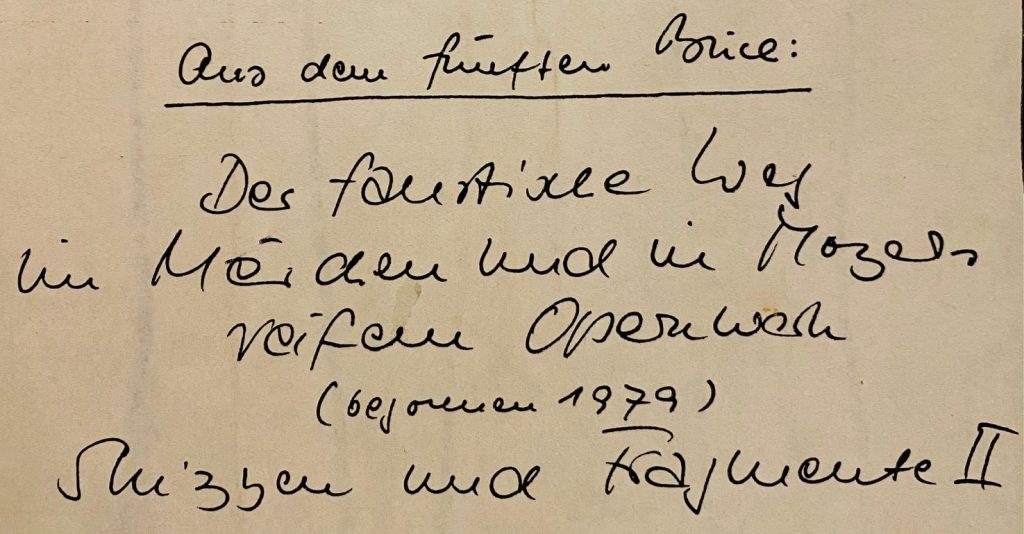 Aus dem fünften Buch:
Der faustische Weg
im Märchen und in Mozarts
reifem Opernwerk
(begonnen 1979)
Skizzen und Fragmente II